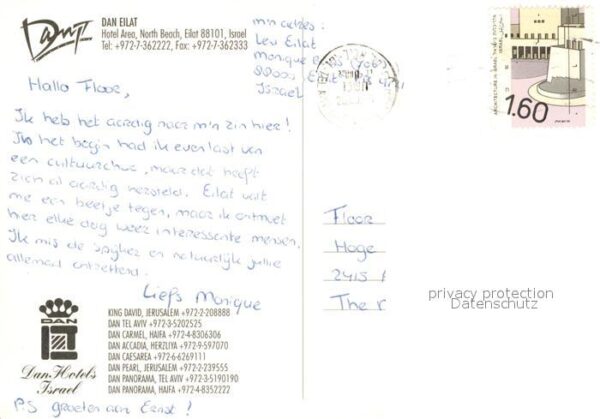 Dan
DAN EILAT
Hotel Area, North Beach, Eilat 88101, Israel
Tel: +972-7-362222, Fax: +972-7-362333
m'n adres:
Lev Eilat
Monique
Eilat
Israel
ARCHITECTURE IN ISRAEL
1.60
Hallo Floor,
Ik heb het aardig naar m'n zin hier!
In het begin had ik even last van
een cultuurshock, maar dat heeft
zich al aardig hersteld. Eilat valt
me een beetje tegen, maar ik ontmoet
hier elke dag weer interessante mensen.
Ik mis de en natuurlijk jullie
allemaal ontzettend.
Liefs Monique
Floor
Hoge
2415
The
privacy protection
Datenschutz
DAN
Dan Hotels
Israel
KING DAVID, JERUSALEM +972-2-208888
DAN TEL AVIV +972-3-5202525
DAN CARMEL, HAIFA +972-4-8306306
DAN ACCADIA, HERZLIYA +972-9-597070
DAN CAESAREA +972-6-6269111
DAN PEARL, JERUSALEM +972-2-239555
DAN PANORAMA, TEL AVIV +972-3-5190190
DAN PANORAMA, HAIFA +972-4-8352222
P.S groeten aan Ernst!